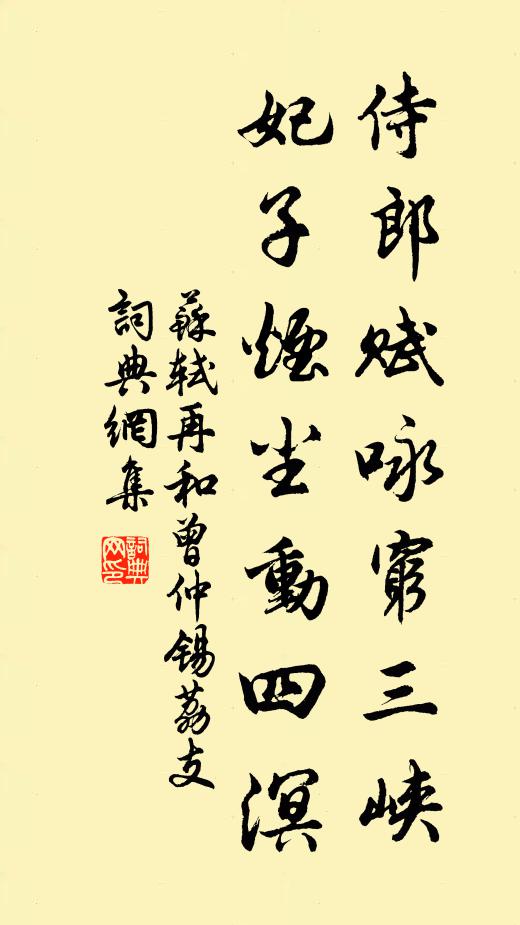 侍郎賦咏窮三峽
妃子煙塵動四溟
蘇軾再和曾仲錫荔支
詞典網集
詞典网印